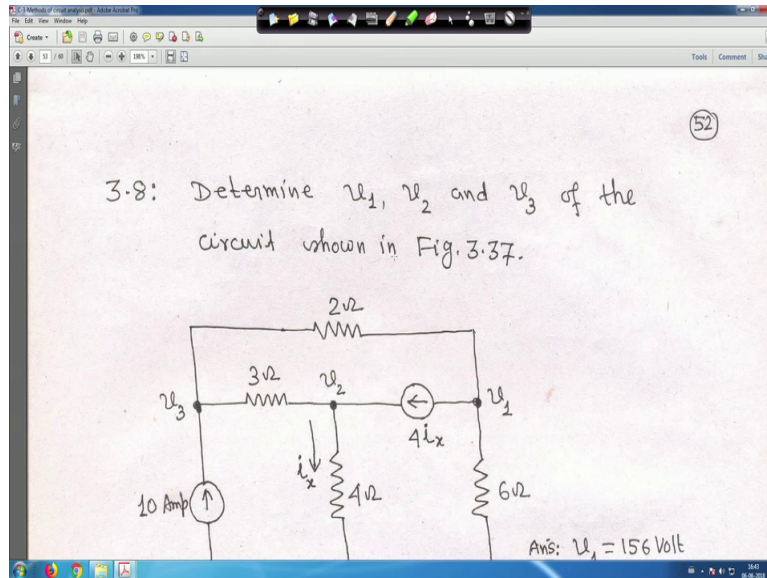 C-3-Methods of circuit analysis.pdf - Adobe Acrobat Pro
File Edit View Window Help
Create
53 / 60 198% Tools Comment
52
3.8: Determine v₁, v₂ and v₃ of the
circuit shown in Fig. 3.37.
2Ω
3Ω v₂
v₃ v₁
4iₓ
iₓ
10 Amp 4Ω 6Ω
Ans: v₁ = 156 Volt
16:43
06-06-2018